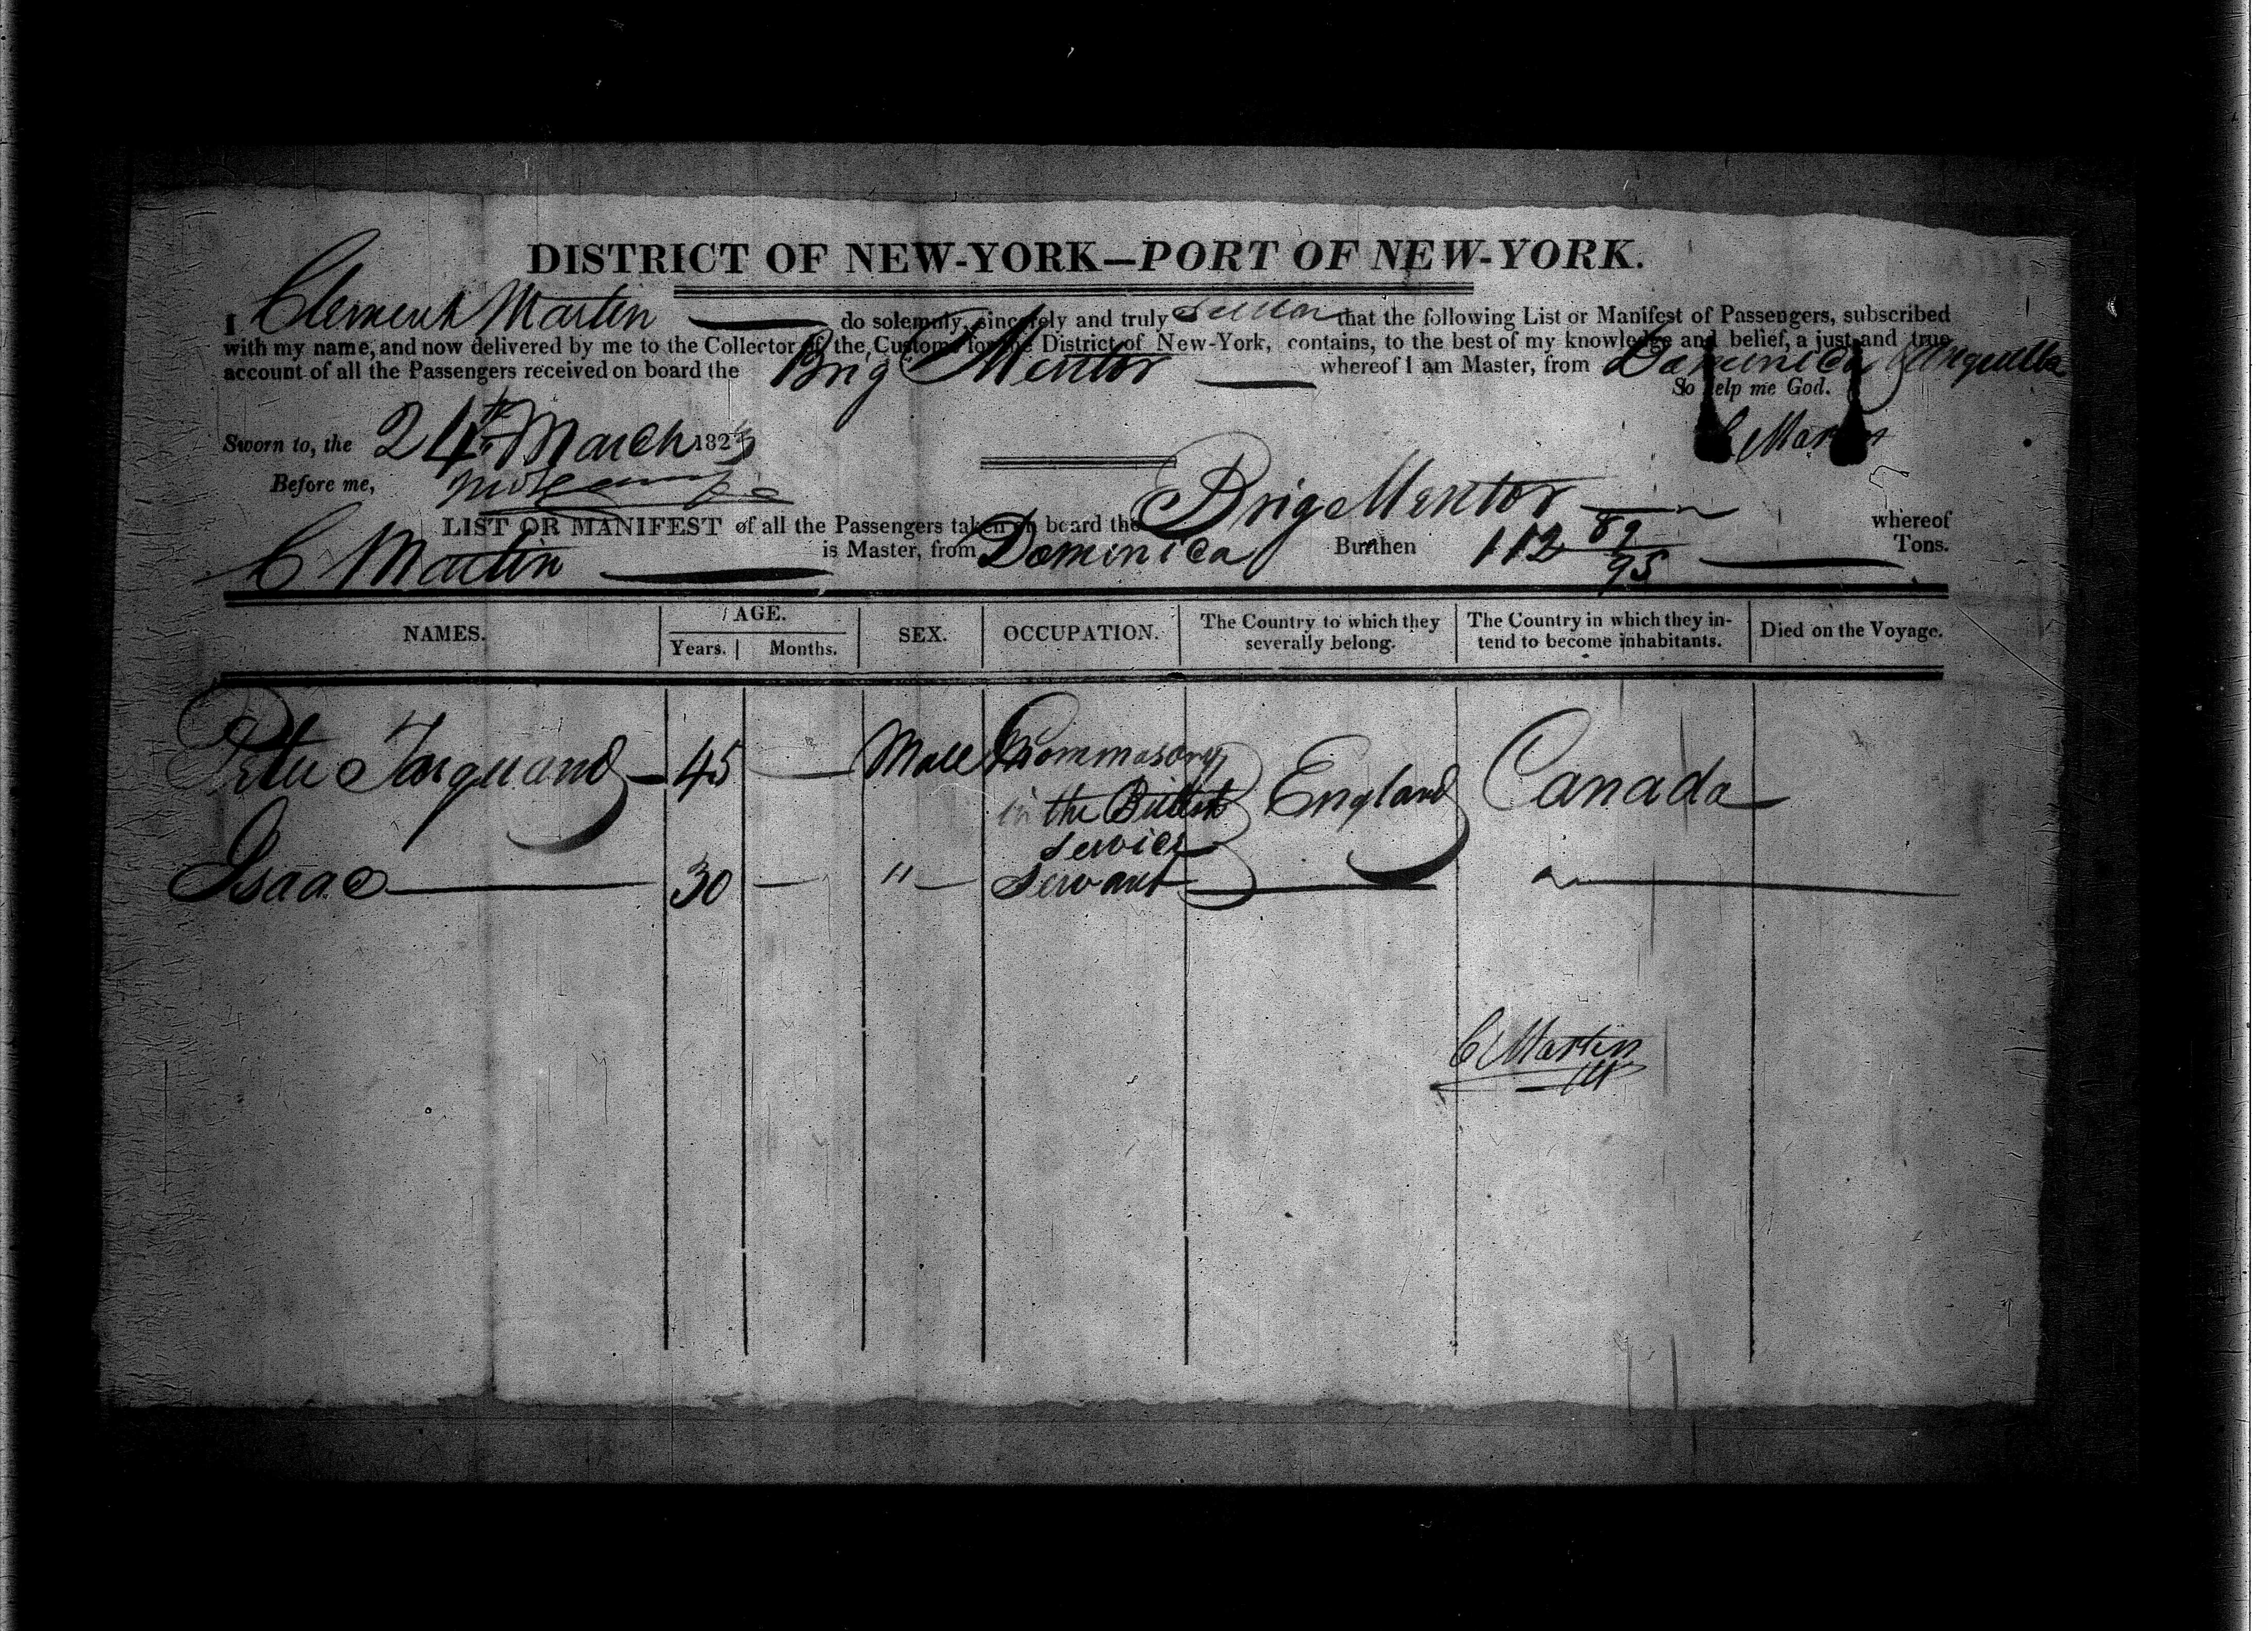 DISTRICT OF NEW-YORK—PORT OF NEW-YORK.
I Clement Martin do solemnly, sincerely and truly swear that the following List or Manifest of Passengers, subscribed
with my name, and now delivered by me to the Collector of the Customs for the District of New-York, contains, to the best of my knowledge and belief, a just and true
account of all the Passengers received on board the Brig Mentor whereof I am Master, from Dominica & Anguilla
So help me God.
Sworn to, the 24th March 1823 C Martin
Before me,
LIST OR MANIFEST of all the Passengers taken on board the Brig Mentor whereof
C Martin is Master, from Dominica Burthen 112 89/95 Tons.
NAMES. AGE. Years. Months. SEX. OCCUPATION. The Country to which they severally belong. The Country in which they intend to become inhabitants. Died on the Voyage.
Peter Turquand 45 — Male Commasary
in the British England Canada
service
Isaac 30 — " Servant
C Martin